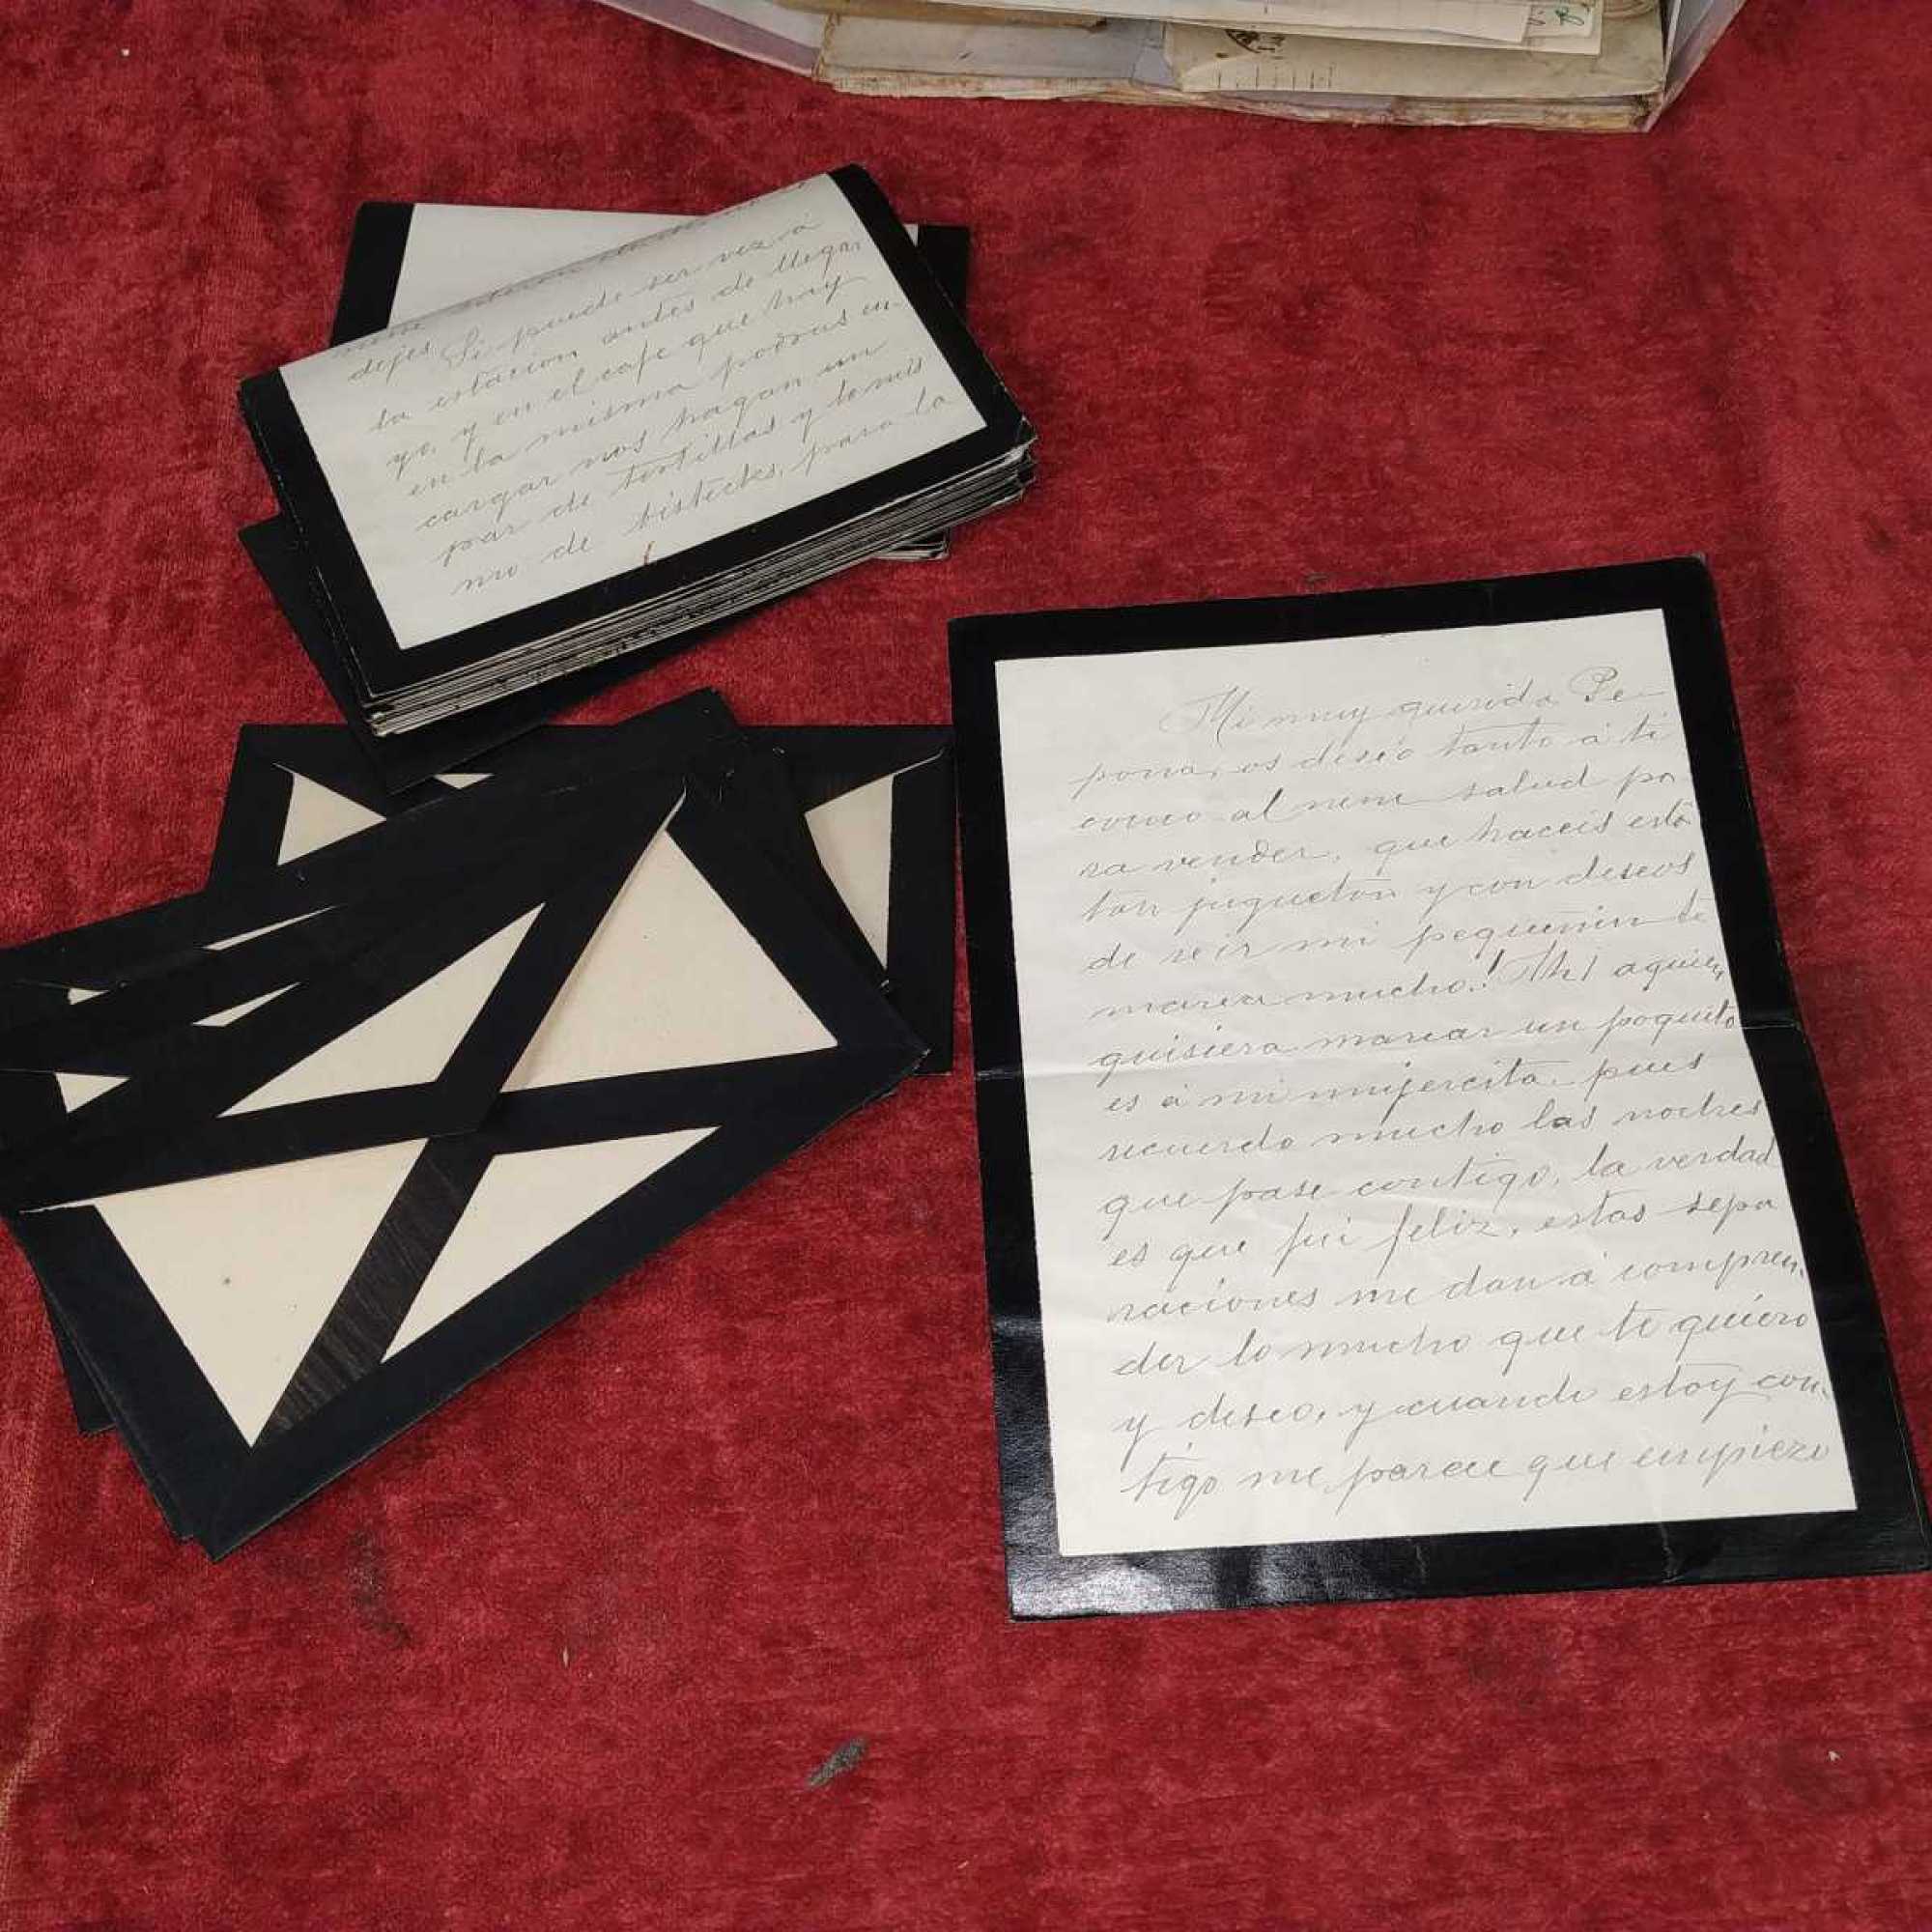 dejes Si puede ser vez á
la estacion antes de llegar
yo, y en el cafe que hay
en la misma podras en-
cargar nos hagan un
par de tortillas y lo mis
mo de bistecks, para la
Mi muy querida Pe-
pona, os deseo tanto á ti
como al nene salud pa-
ra vender, que haceis está
tan juguetón y con deseos
de reir mi pequeñin te
marea mucho! Ah! a quien
quisiera marear un poquito
es á mi mujercita, pues
recuerdo mucho las noches
que pase contigo, la verdad
es que fui feliz, estas sepa
raciones me dan á compren-
der lo mucho que te quiero
y deseo, y cuando estoy con-
tigo me parece que empiezo